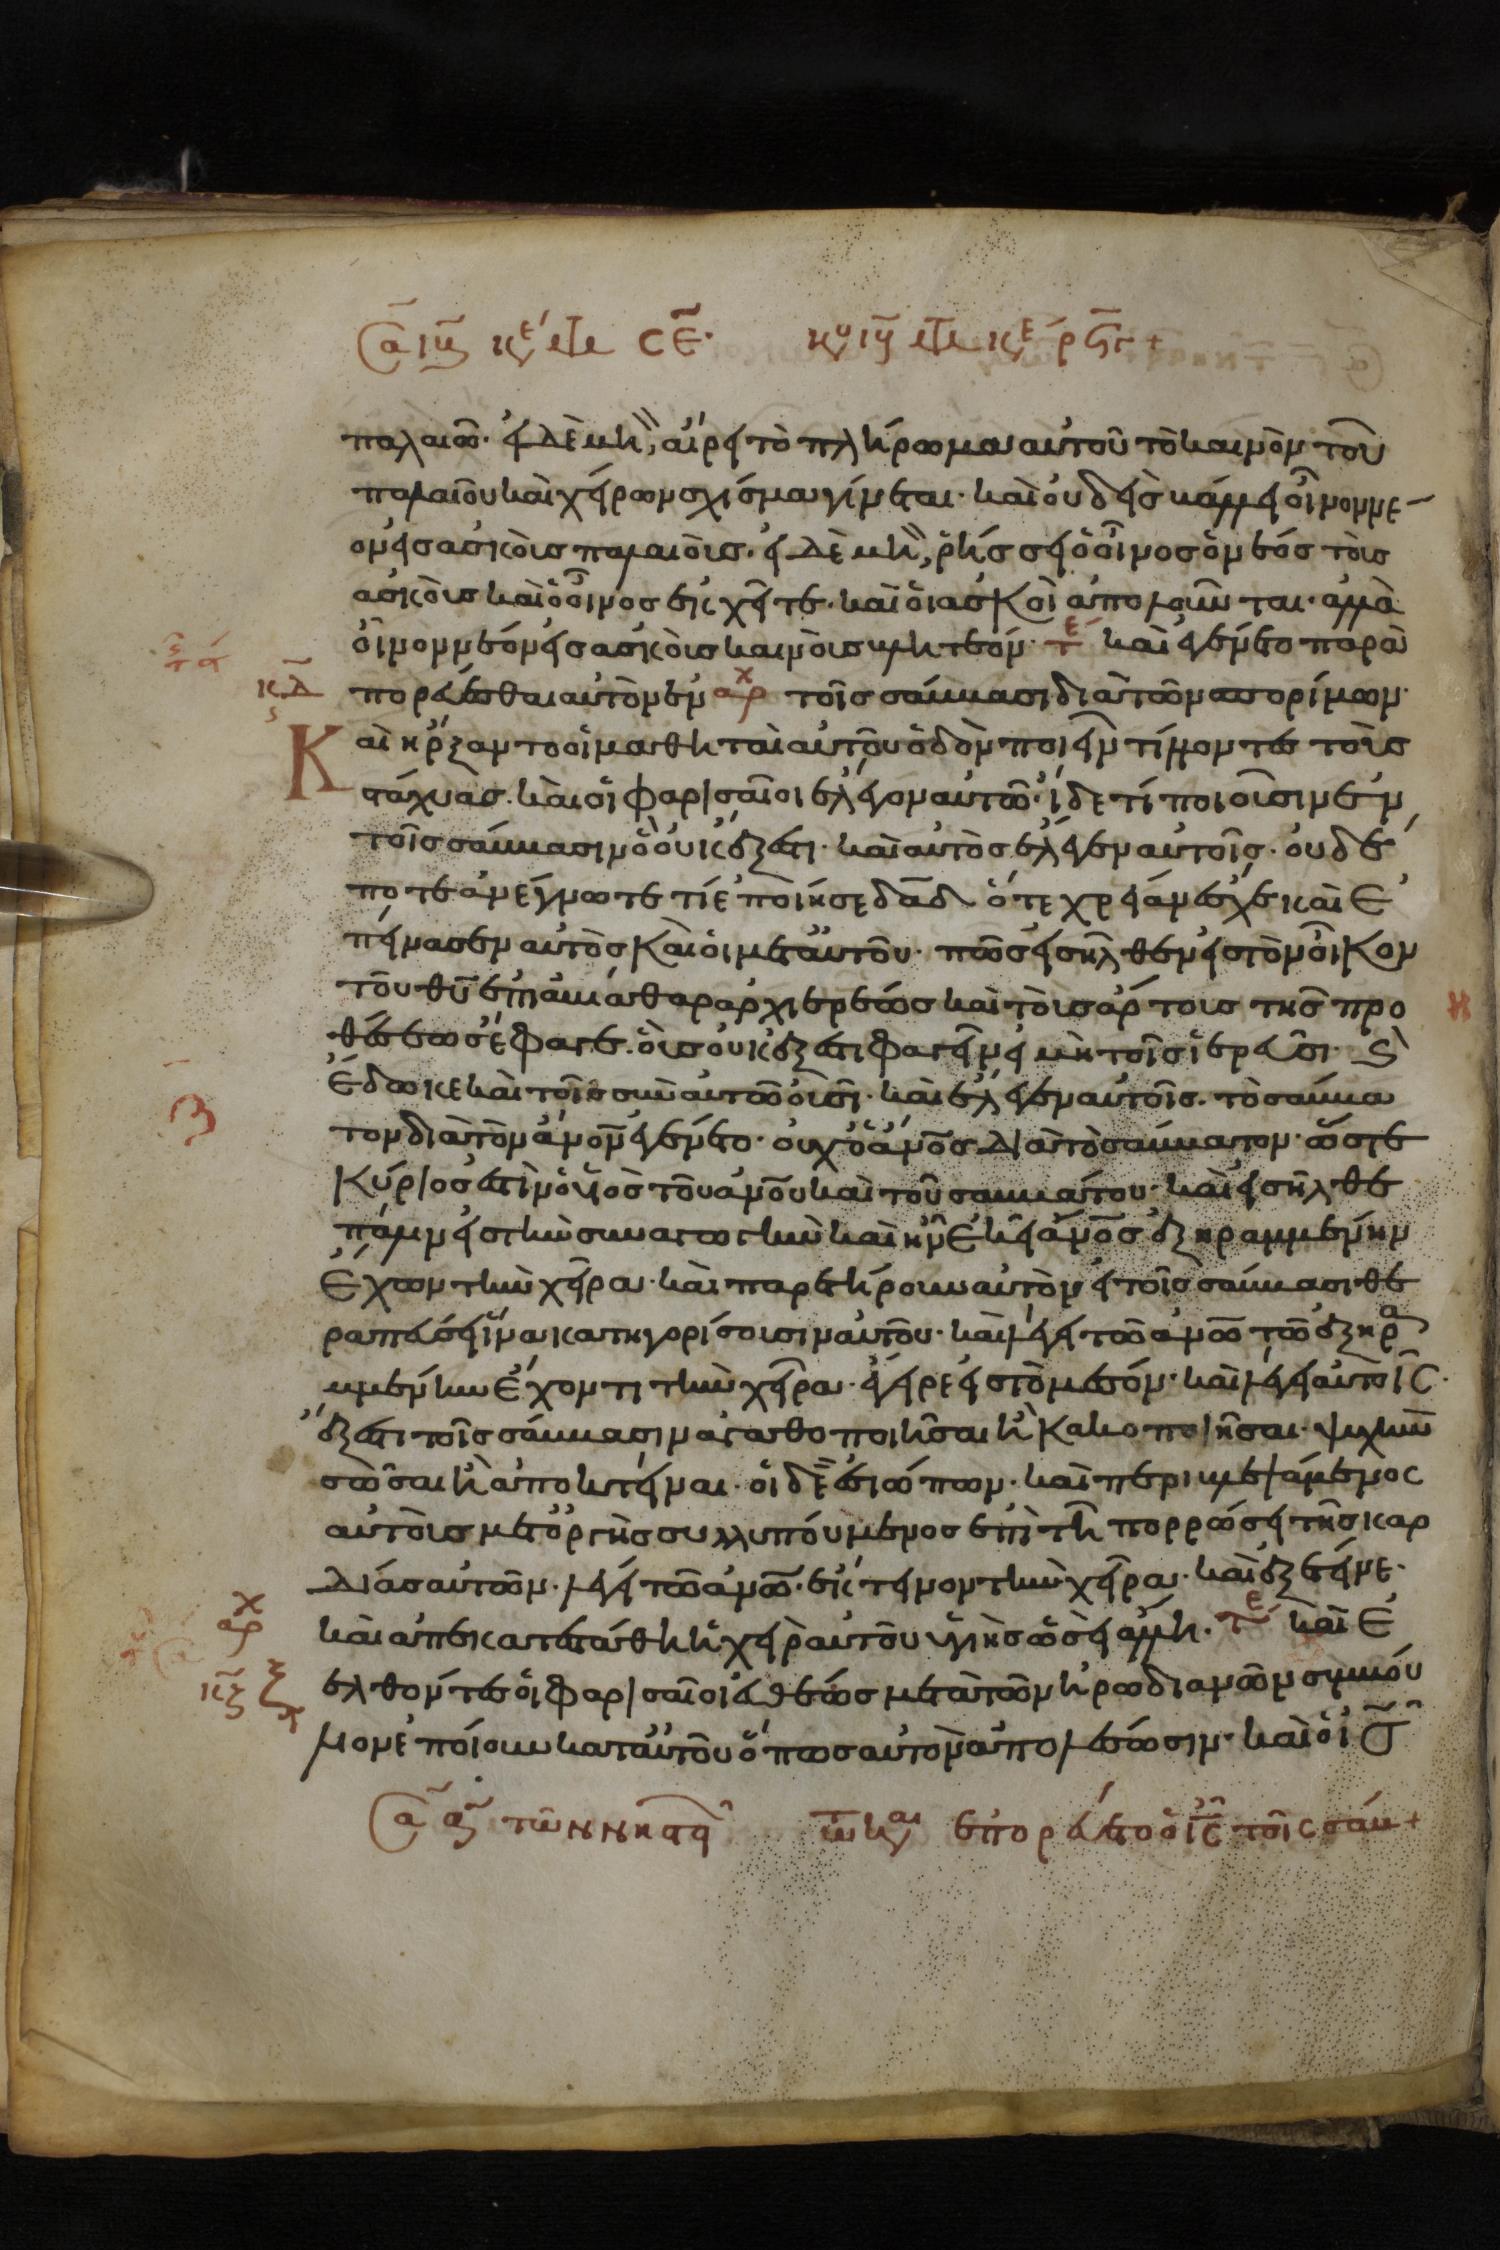 παλαιῶ. εἰ δὲ μὴ, αἴρει τὸ πλήρωμα αὐτοῦ τὸ καινὸν τοῦ
παλαιοῦ καὶ χείρων σχίσμα γίνεται. καὶ οὐδεὶς βάλλει οἶνον νέ
ον εἰς ἀσκοὺς παλαιοὺς. εἰ δὲ μὴ, ῥήσσει ὁ οἶνος ὁ νέος τοὺς
ἀσκοὺς καὶ ὁ οἶνος ἐκχεῖτε. καὶ οἱ ἀσκοὶ ἀπολοῦνται. ἀλλὰ
οἶνον νέον εἰς ἀσκοὺς καινοὺς βλητέον. τε καὶ ἐγένετο παρα
κδ πορεύεσθαι αὐτὸν ἐν αρχ τοῖς σάββασι διὰ τῶν σπορίμων.
Καὶ ἤρξαντο οἱ μαθηταὶ αὐτοῦ ὁδὸν ποιεῖν τίλλοντες τοὺς
στάχυας. καὶ οἱ φαρισαῖοι ἔλεγον αὐτῶ. ἴδε τί ποιοῦσιν ἐν
τοῖς σάββασιν ὃ οὐκ ἔξεστι. καὶ αὐτὸς ἔλεγεν αὐτοῖς. οὐδέ
ποτε ἀνέγνωτε τί ἐποίησε δαδ ὅτε χρείαν ἔσχε καὶ ἐ
πείνασεν αὐτὸς καὶ οἱ μετ αὐτοῦ. πῶς εἰσῆλθεν εἰς τὸν οἶκον
τοῦ θυ ἐπὶ ἀβιάθαρ ἀρχιερέως καὶ τοὺς ἄρτους τῆς προ
θέσεως ἔφαγε. οὓς οὐκ ἔξεστι φαγεῖν εἰ μὴ τοῖς ἱερεῦσι. Ϗ
ἔδωκε καὶ τοῖς σὺν αὐτῶ οὖσι. καὶ ἔλεγεν αὐτοῖς. τὸ σάββα
τον διὰ τὸν ἄνον ἐγένετο. οὐχ ὁ ἄνος διὰ τὸ σάββατον. ὥστε
κύριος ἐστὶν ὁ υἱὸς τοῦ ανου καὶ τοῦ σαββάτου. καὶ εἰσῆλθε
πάλιν εἰς τὴν συναγωγὴν καὶ ἦν ἐκεῖ ἄνος ἐξηραμμένην
ἔχων τὴν χεῖρα. καὶ παρετήρουν αὐτὸν εἰ τοῖς σάββασι θε
ραπεύσει ἵνα κατηγορίσουσιν αὐτοῦ. καὶ λέγει τῶ ανω τῶ ἐξηρα
μμένην ἔχοντι τὴν χεῖρα. ἔγειρε εἰς τὸ μέσον. καὶ λέγει αὐτοῖς.
ἔξεστι τοῖς σάββασιν ἀγαθοποιῆσαι ἢ κακοποιῆσαι. ψυχὴν
σῶσαι ἢ ἀποκτεῖναι. οἱ δὲ ἐσιώπων. καὶ περιβλεψάμενος
αὐτοὺς μετ ὀργῆς συλλυπούμενος ἐπὶ τῆ πορρώσει τῆς καρ
δίας αὐτῶν. λέγει τῶ ανω. ἔκτεινον τὴν χεῖρα. καὶ ἐξέτεινε.
καὶ ἀπεκατεστάθη ἡ χεὶρ αὐτοῦ ὑγιὴς ὡς ἡ ἄλλη. τε καὶ ἐ
ξελθόντες οἱ φαρισαῖοι εὐθέως μετὰ τῶν ἡρωδιανῶν συμβού
λιον ἐποίουν κατ αὐτοῦ ὅπως αὐτὸν ἀπολέσωσιν. καὶ ὁ ις